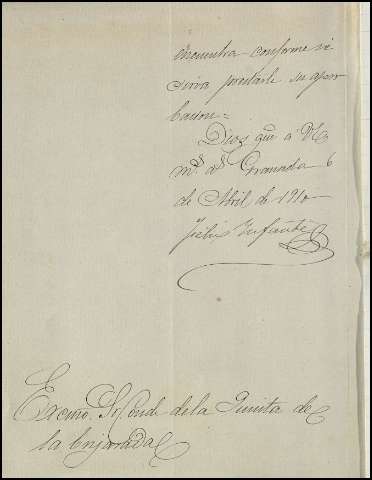 encuentra conforme se
sirva prestarle su apro
bacion=
Dios gue á VE
ms. as. Granada 6
de Abril de 1910
Felix Infante
Excmo. Sr. Conde de la Quinta de
la Enjarada